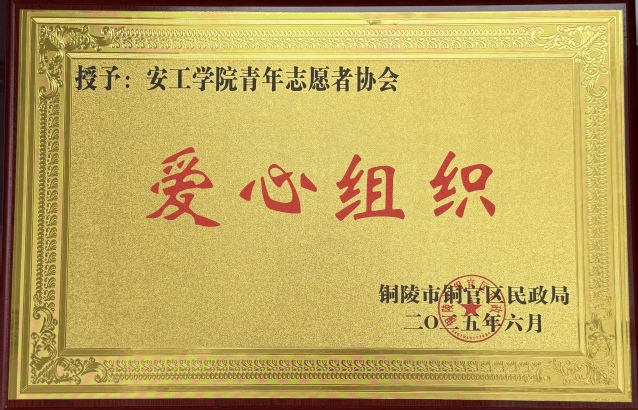 授予：安工学院青年志愿者协会
爱心组织
铜陵市铜官区民政局
二〇二五年六月